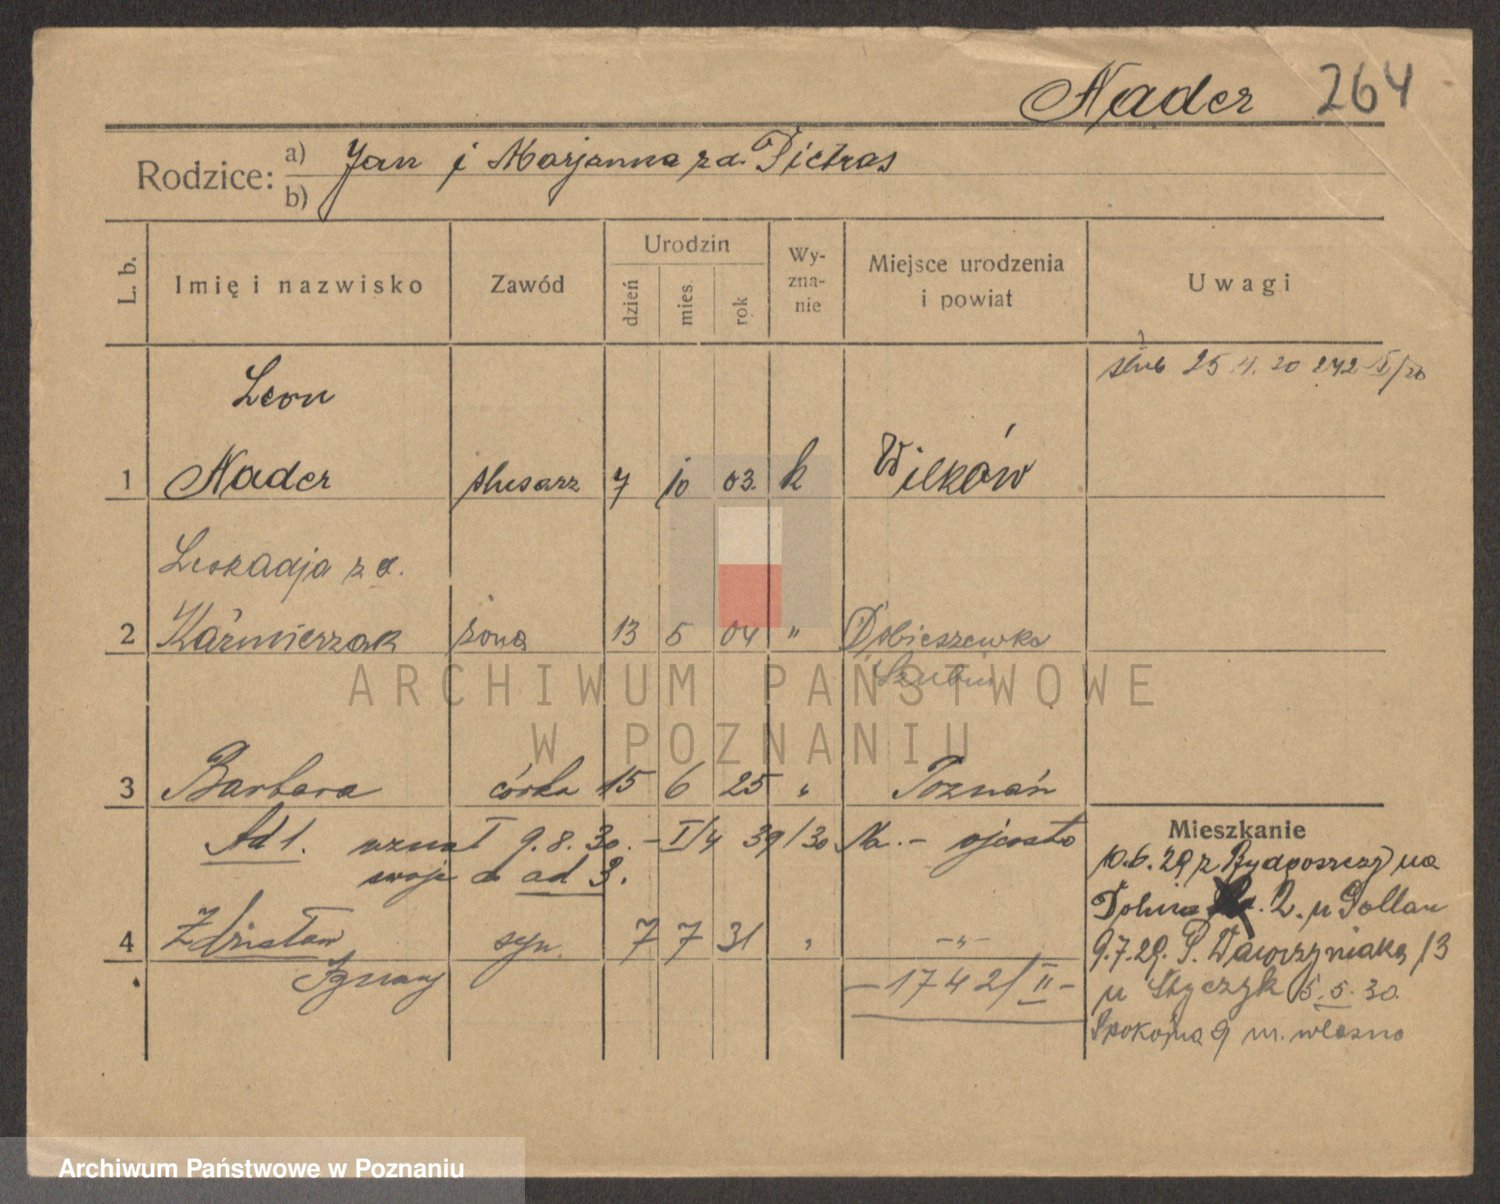 Nader 264
Rodzice: a) b) Jan i Marjanna z d. Pietras
L. b. Imię i nazwisko Zawód Urodzin dzień mies rok Wy-zna-nie Miejsce urodzenia i powiat Uwagi
ślub 25.4.30 242
Leon
1 Nader ślusarz 7 10 03. k Wilków
Leokadja z d.
2 Kaźmierzak żona 13 5 04 " Dobieszewko
Szubin
ARCHIWUM PAŃSTWOWE
W POZNANIU
3 Barbara córka 15 6 25 " Poznań
Mieszkanie
Ad 1. uznał 9.8.30. – I/4 39/30 – ojcostwo
swoje do ad 3.
10.6.29 z Bydgoszczy na
Dolina 2. u Gollau
4 Zdzisław syn 7 7 31 " –"–
Ignacy
–1742/II–
9.7.29. P. Wawrzyniaka 13
u Styczyk 5.5.30.
Spokojna 9 m. własne
Archiwum Państwowe w Poznaniu